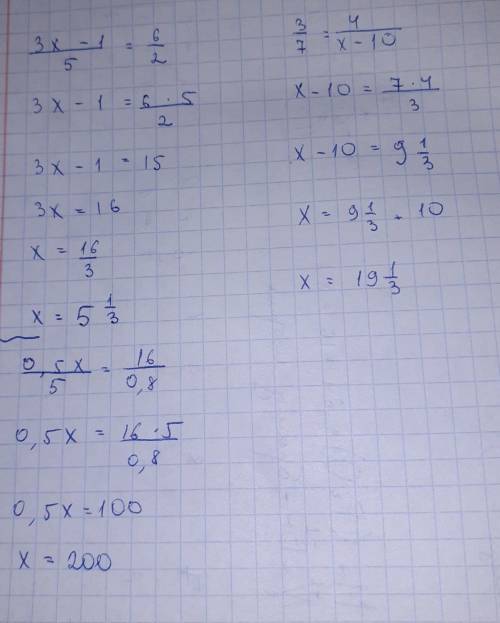 (3x - 1)/5 = 6/2
3x - 1 = (6 · 5)/2
3x - 1 = 15
3x = 16
x = 16/3
x = 5 1/3
0,5x/5 = 16/0,8
0,5x = (16 · 5)/0,8
0,5x = 100
x = 200
3/7 = 4/(x - 10)
x - 10 = (7 · 4)/3
x - 10 = 9 1/3
x = 9 1/3 + 10
x = 19 1/3